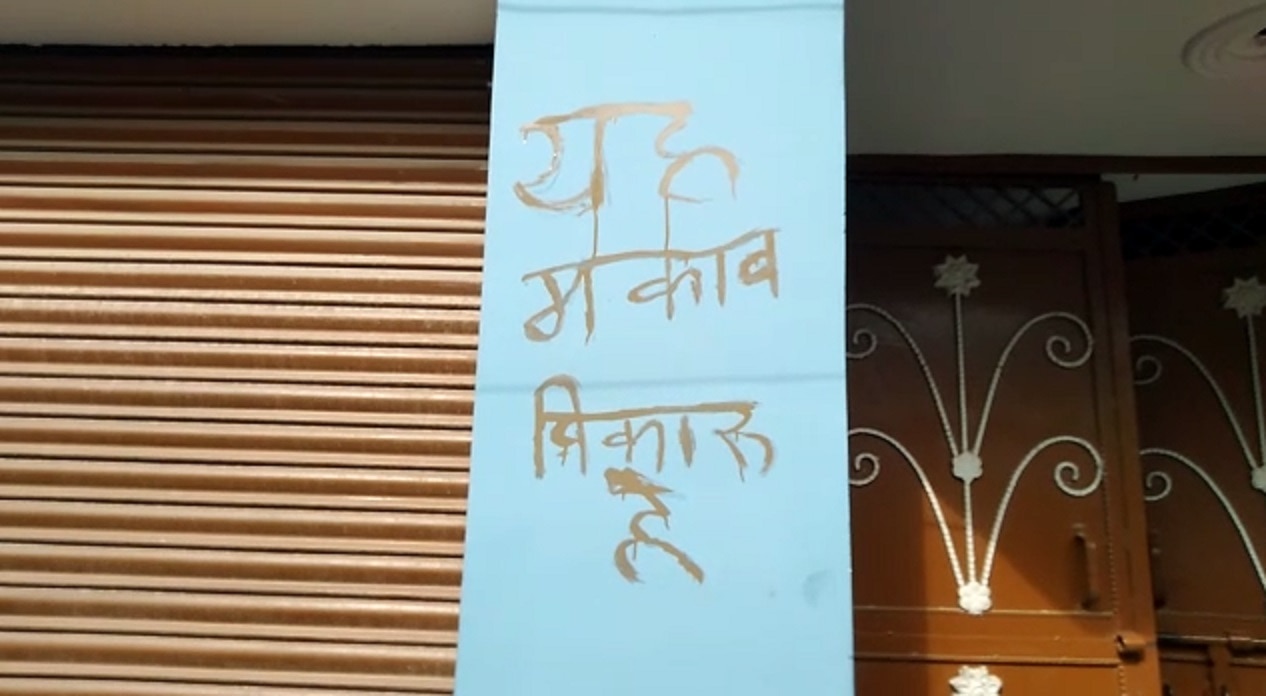 यह
मकान
बिकाऊ
है